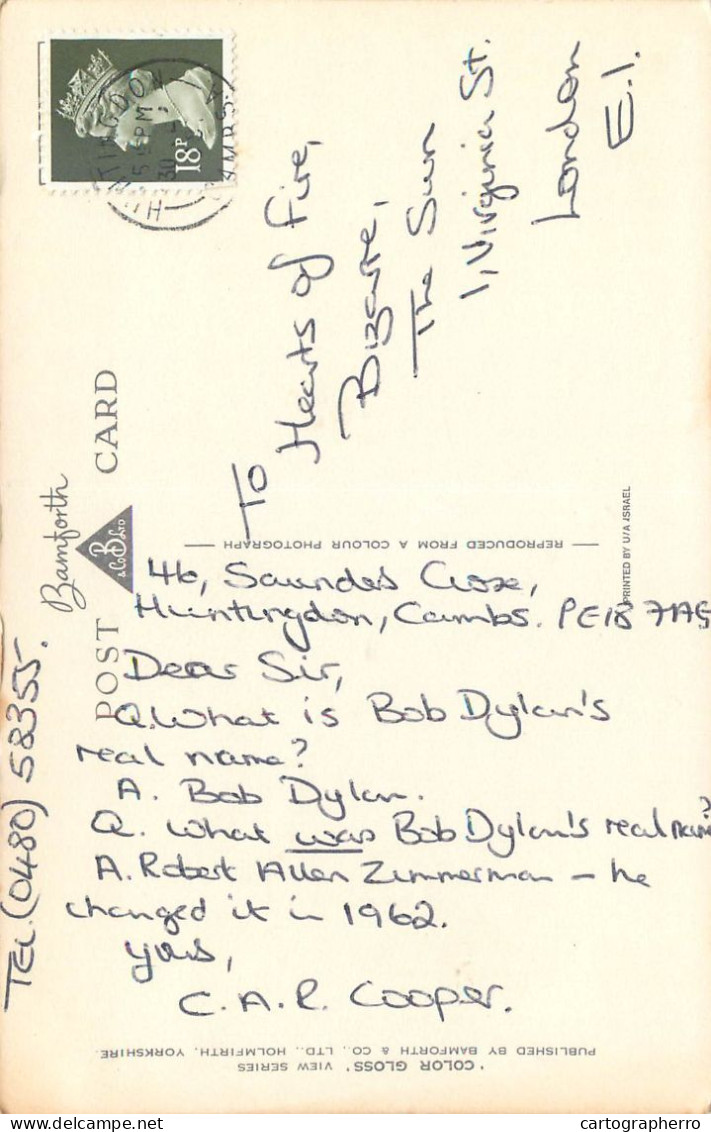 HUNTINGDON
5 15 PM
30
CAMBS
18P
POST CARD
Bamforth
& Co B LTD
To
Hearts of Fire,
Bizarre,
The Sun
1, Virginia St.
London
E.1.
REPRODUCED FROM A COLOUR PHOTOGRAPH
PRINTED BY U/A ISRAEL
TEL (0480) 58355.
46, Saundes Close,
Huntingdon, Cambs. PE18
Dear Sir,
Q. What is Bob Dylan's
real name?
A. Bob Dylan.
Q. What was Bob Dylan's real name?
A. Robert Allen Zimmerman – he
changed it in 1962.
Yours,
C. A. R. Cooper.
'COLOR GLOSS' VIEW SERIES
PUBLISHED BY BAMFORTH & CO., LTD., HOLMFIRTH, YORKSHIRE.
cartographerro